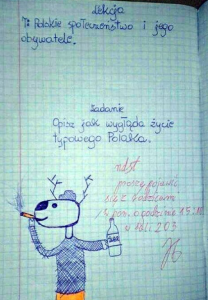 Lekcja
T: Polskie społeczeństwo i jego
obywatel.
Zadanie
Opisz jak wygląda życie
typowego Polaka.
ndst
proszę pojawić
się z rodzicami
o godzinie 15:10
w sali 203